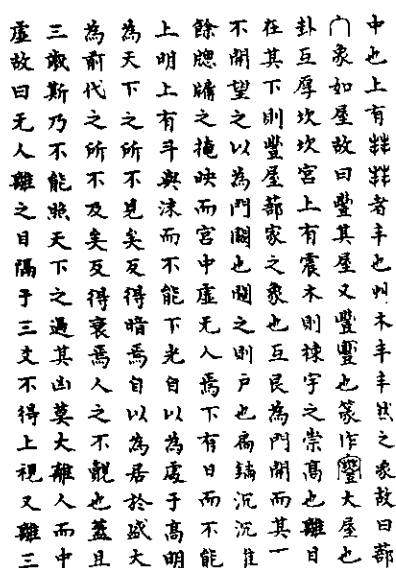 中也上有者丰也艸木丰丰然之象故曰蔀
象如屋故曰豐其屋又豐豐也篆作大屋也
卦互厚坎坎宮上有震木則棟宇之崇高也離日
在其下則豐屋蔀家之象也互艮為門開而其一
不開望之以為門闔也闔之則戶也扃鐍沉沉隹
餘牕牖之掩映而宮中虛无人焉下有日而不能
上明上有斗與沬而不能下光自以為處于高明
為天下之所不見矣反得暗焉自以為居於盛大
為前代之所不及矣反得衰焉人之不覿也蓋且
三歲斯乃不能照天下之過其凶莫大離人而中
虛故曰无人離之目隔于三爻不得上視又離三